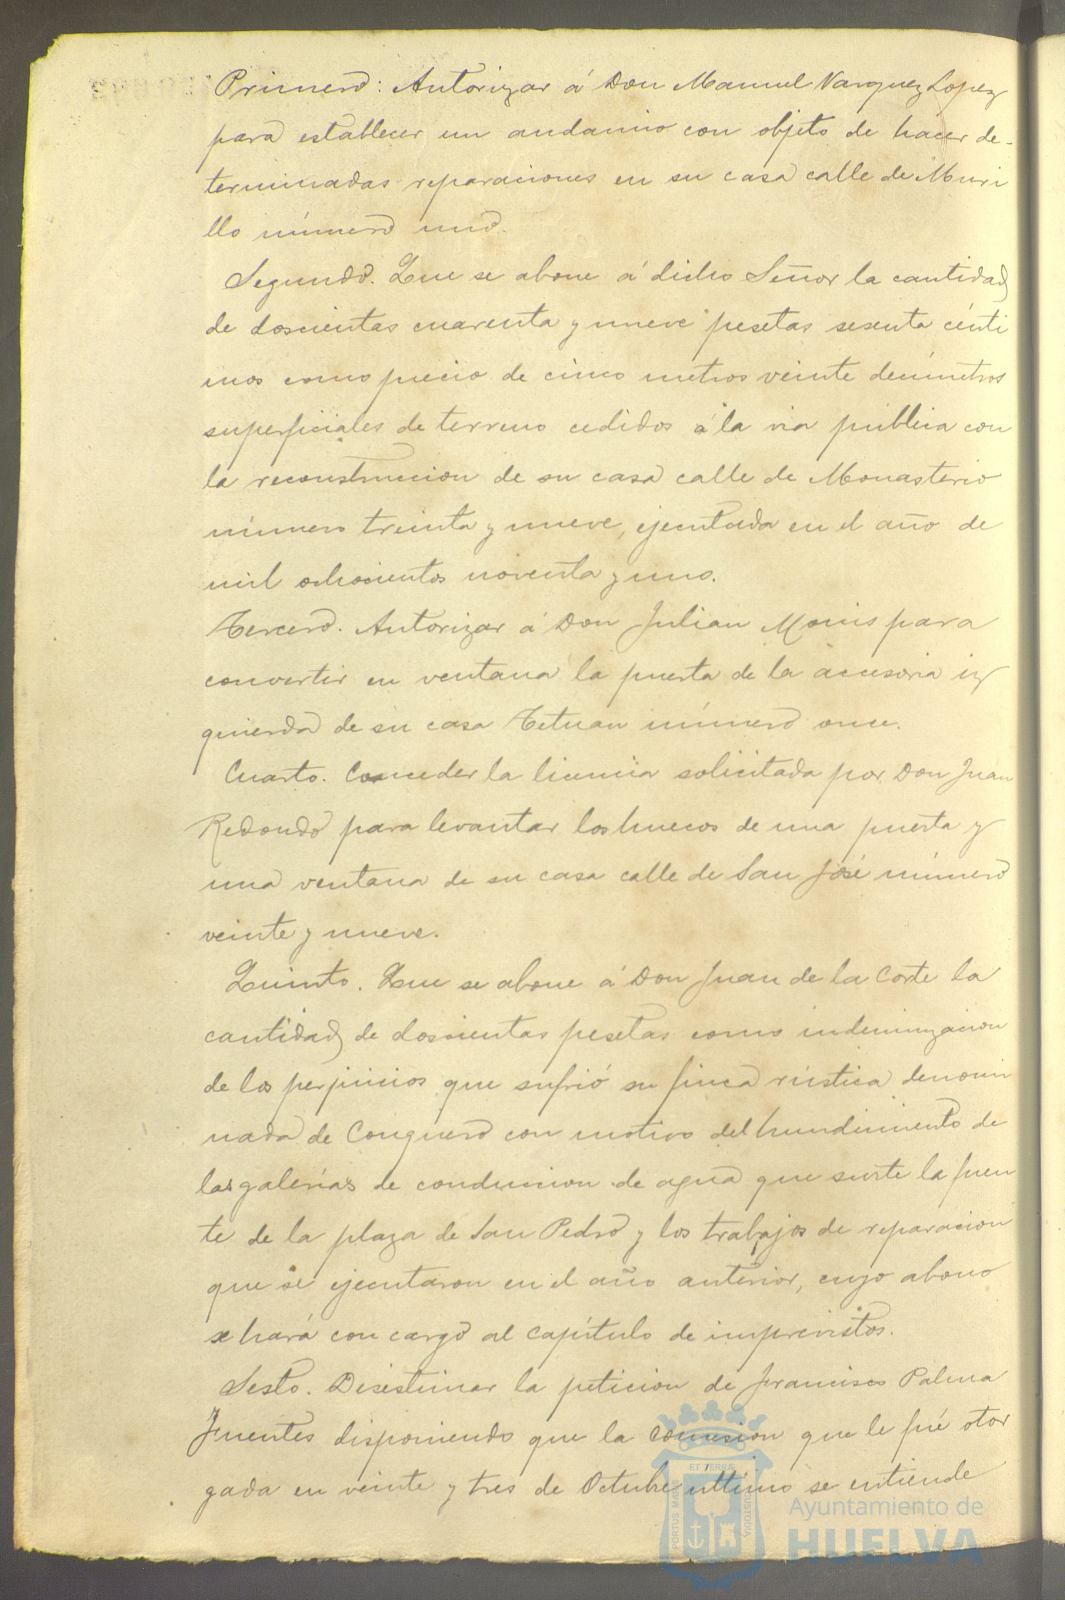 Primero: Autorizar á Don Manuel Vazquez Lopez
para establecer un andamio con objeto de hacer de-
terminadas reparaciones en su casa calle de Muri
llo número uno.
Segundo. Que se abone á dicho Señor la cantidad
de doscientas cuarenta y nueve pesetas sesenta cénti
mos como precio de cinco metros veinte decímetros
superficiales de terreno cedidos á la via pública con
la reconstruccion de su casa calle de Monasterio
número treinta y nueve, ejecutada en el año de
mil ochocientos noventa y uno.
Tercero. Autorizar á Don Julian Monis para
convertir en ventana la puerta de la accesoria iz
quierda de su casa Tetuan número once.
Cuarto. Conceder la licencia solicitada por Don Juan
Redondo para levantar los huecos de una puerta y
una ventana de su casa calle de San José número
veinte y nueve.
Quinto. Que se abone á Don Juan de la Corte la
cantidad de doscientas pesetas como indemnizacion
de los perjuicios que sufrió su finca rústica denomi
nada de Conquero con motivo del hundimiento de
las galerías de conduccion de agua que surte la fuen
te de la plaza de San Pedro y los trabajos de reparacion
que se ejecutaron en el año anterior, cuyo abono
se hará con cargo al capítulo de imprevistos.
Sesto. Desestimar la peticion de Francisco Palma
Fuentes disponiendo que la concesion que le fué otor
gada en veinte y tres de Octubre ultimo se entiende
ET TERRÆ
PORTUS MARIS
CUSTODIA
Ayuntamiento de
HUELVA